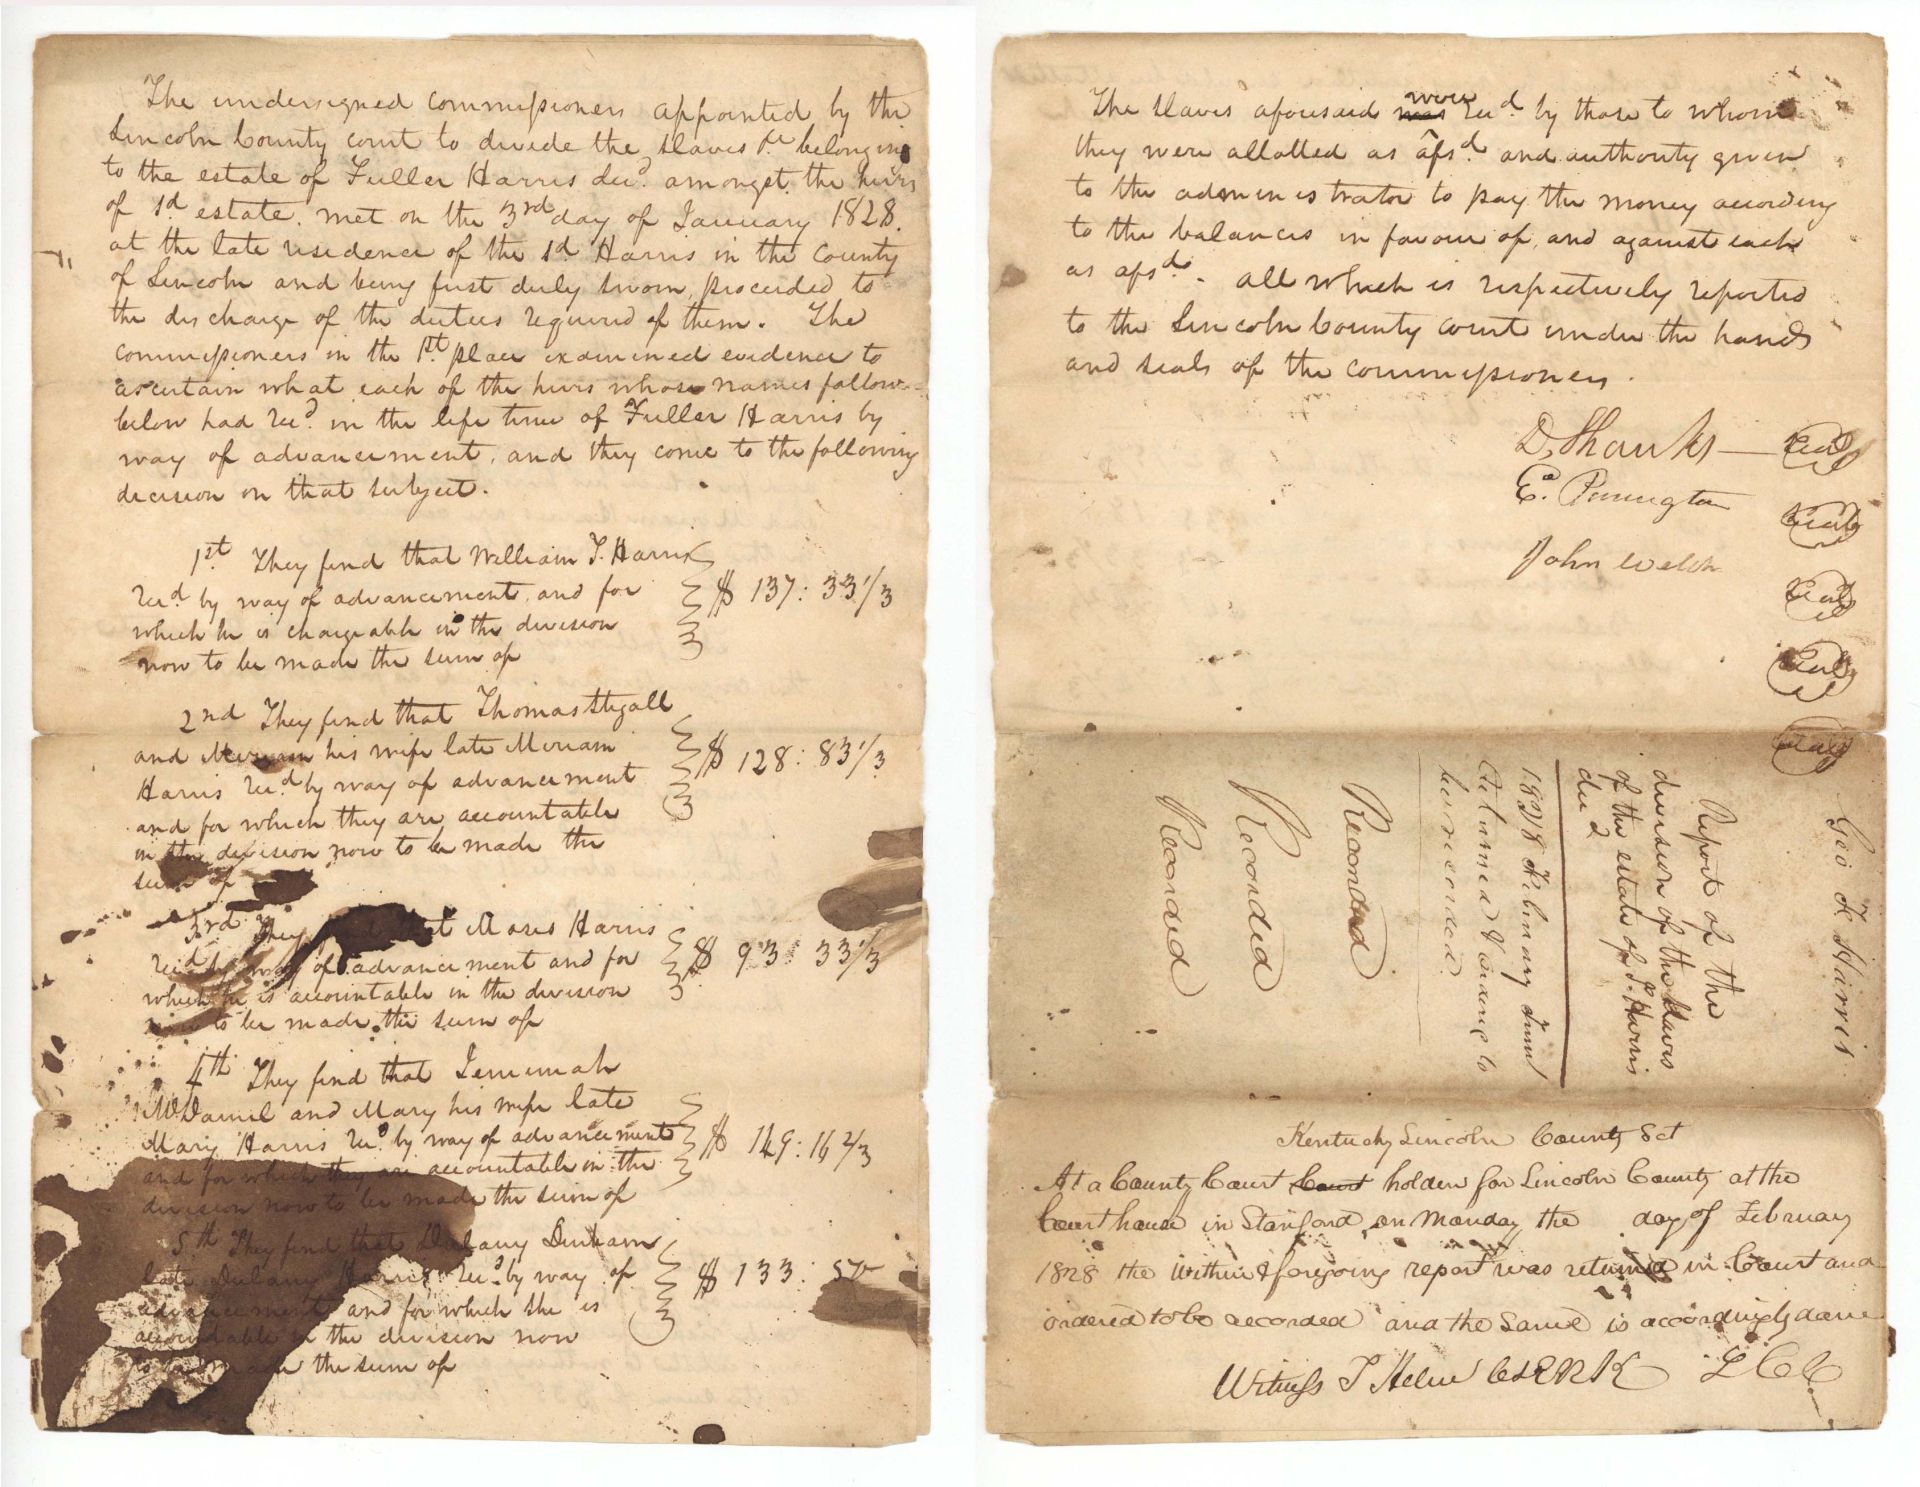 The undersigned commissioners appointed by the
Lincoln County court to divide the slaves &c. belonging
to the estate of Fuller Harris decd. amongst the heirs
of sd. estate. met on the 3rd day of January 1828.
at the late residence of the sd. Harris in the County
of Lincoln and being first duly sworn, proceeded to
the discharge of the duties required of them. The
commissioners in the 1st. place examined evidence to
ascertain what each of the heirs whose names follow
below had Recd. in the life time of Fuller Harris by
way of advancement, and they come to the following
decision on that subject.
1st. They find that William T. Harris
Recd. by way of advancement, and for
which he is chargeable in the division
now to be made the sum of
$ 137: 33 1/3
2nd They find that Thomas Stigall
and Miriam his wife late Miriam
Harris Recd. by way of advancement
and for which they are accountable
in the division now to be made the
sum of
$ 128: 83 1/3
3rd They find that Moses Harris
Recd by way of advancement and for
which he is accountable in the division
now to be made the sum of
$ 93: 33 1/3
4th They find that Jeremiah
McDaniel and Mary his wife late
Mary Harris Recd. by way of advancement
and for which they are accountable in the
division now to be made the sum of
$ 149: 16 2/3
5th They find that Dulany Durham
late Dulany Harris Recd. by way of
advancement and for which she is
accountable in the division now
to be made the sum of
$ 133: 50
The slaves aforesaid was were Recd. by those to whom
they were allotted as afsd. and authority given
to the administrator to pay the money according
to the balances in favour of, and against each
as afsd. all which is respectively reported
to the Lincoln County court under the hands
and seals of the commissioners.
D. Shanks Seal
Ea. Pennington Seal
John Welch Seal
Seal
Seal
Geo F Harris
Report of the
division of the slaves
of the estate of F. Harris
decd
1828 February Term
Returned & ordered to
be recorded
Recorded
Recorded
Recorded
Kentucky Lincoln County Sct
At a County Court Court holden for Lincoln County at the
Court house in Stanford, on Monday the day of February
1828 the within & foregoing report was returned in Court and
ordered to be recorded and the same is accordingly done
Witness T Helm CLERK LCC